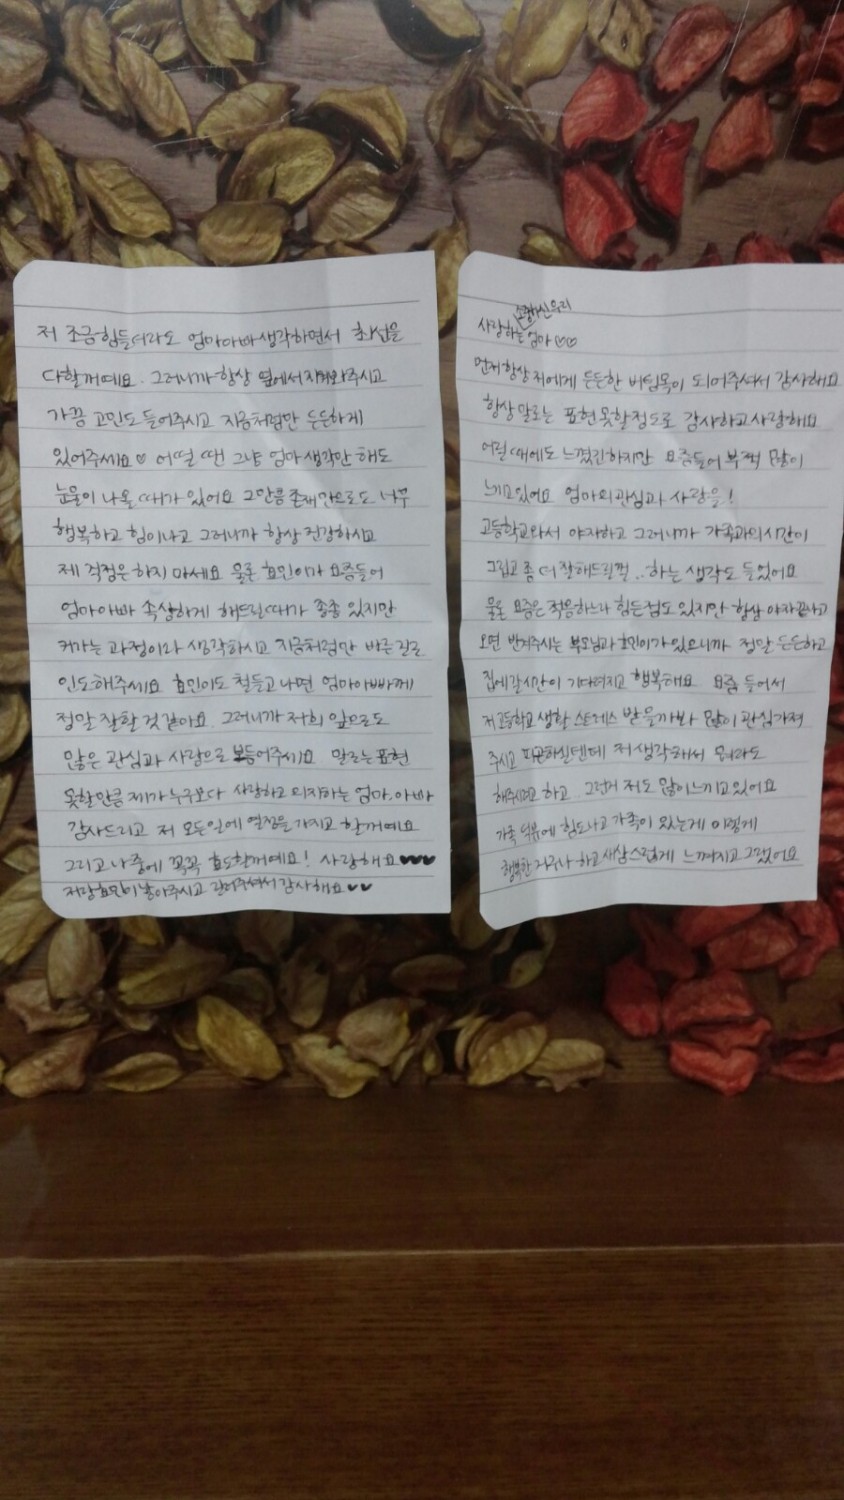 소중하신 우리
사랑하는 엄마♡♡
먼저 항상 저에게 든든한 버팀목이 되어주셔서 감사해요
항상 말로는 표현 못할정도로 감사하고 사랑해요
어릴 때에도 느꼈긴하지만 요즘들어 부쩍 많이
느끼고있어요 엄마의 관심과 사랑을!
고등학교와서 야자하고 그러니까 가족과의시간이
그립고 좀 더 잘해드릴껄..하는 생각도 들었어요
물론 요즘은 적응하느라 힘든점도 있지만 항상 야자끝나고
오면 반겨주시는 부모님과 효인이가 있으니까 정말 든든하고
집에갈시간이 기다려지고 행복해요 요즘 들어서
저고등학교생활 스트레스 받을까봐 많이 관심가져
주시고 피곤하실텐데 저 생각해서 뭐라도
해주시려고 하고 그런거 저도 많이느끼고있어요
가족 덕분에 힘도나고 가족이 있는게 이렇게
행복한 거구나 하고 새삼스럽게 느껴지고 그랬어요
저 조금힘들더라도 엄마아빠생각하면서 최선을
다할꺼예요. 그러니까 항상 옆에서 지켜봐주시고
가끔 고민도 들어주시고 지금처럼만 든든하게
있어주세요♡ 어떨 땐 그냥 엄마생각만 해도
눈물이 나올 때가 있어요 그만큼 존재만으로도 너무
행복하고 힘이나고 그러니까 항상 건강하시고
제 걱정은 하지 마세요 물론 효인이가 요즘들어
엄마아빠 속상하게 해드릴때가 종종 있지만
커가는 과정이라 생각하시고 지금처럼만 바른길로
인도해주세요 효인이도 철들고나면 엄마아빠께
정말 잘할 것 같아요. 그러니까 저희 앞으로도
많은 관심과 사랑으로 보듬어주세요 말로는 표현
못할만큼 제가누구보다 사랑하고 의지하는 엄마.아빠
감사드리고 저 모든일에 열정을 가지고 할꺼예요
그리고 나중에 꼭꼭 효도할꺼예요! 사랑해요♥♥♥
저랑효인이 낳아주시고 길러주셔서 감사해요♥♥